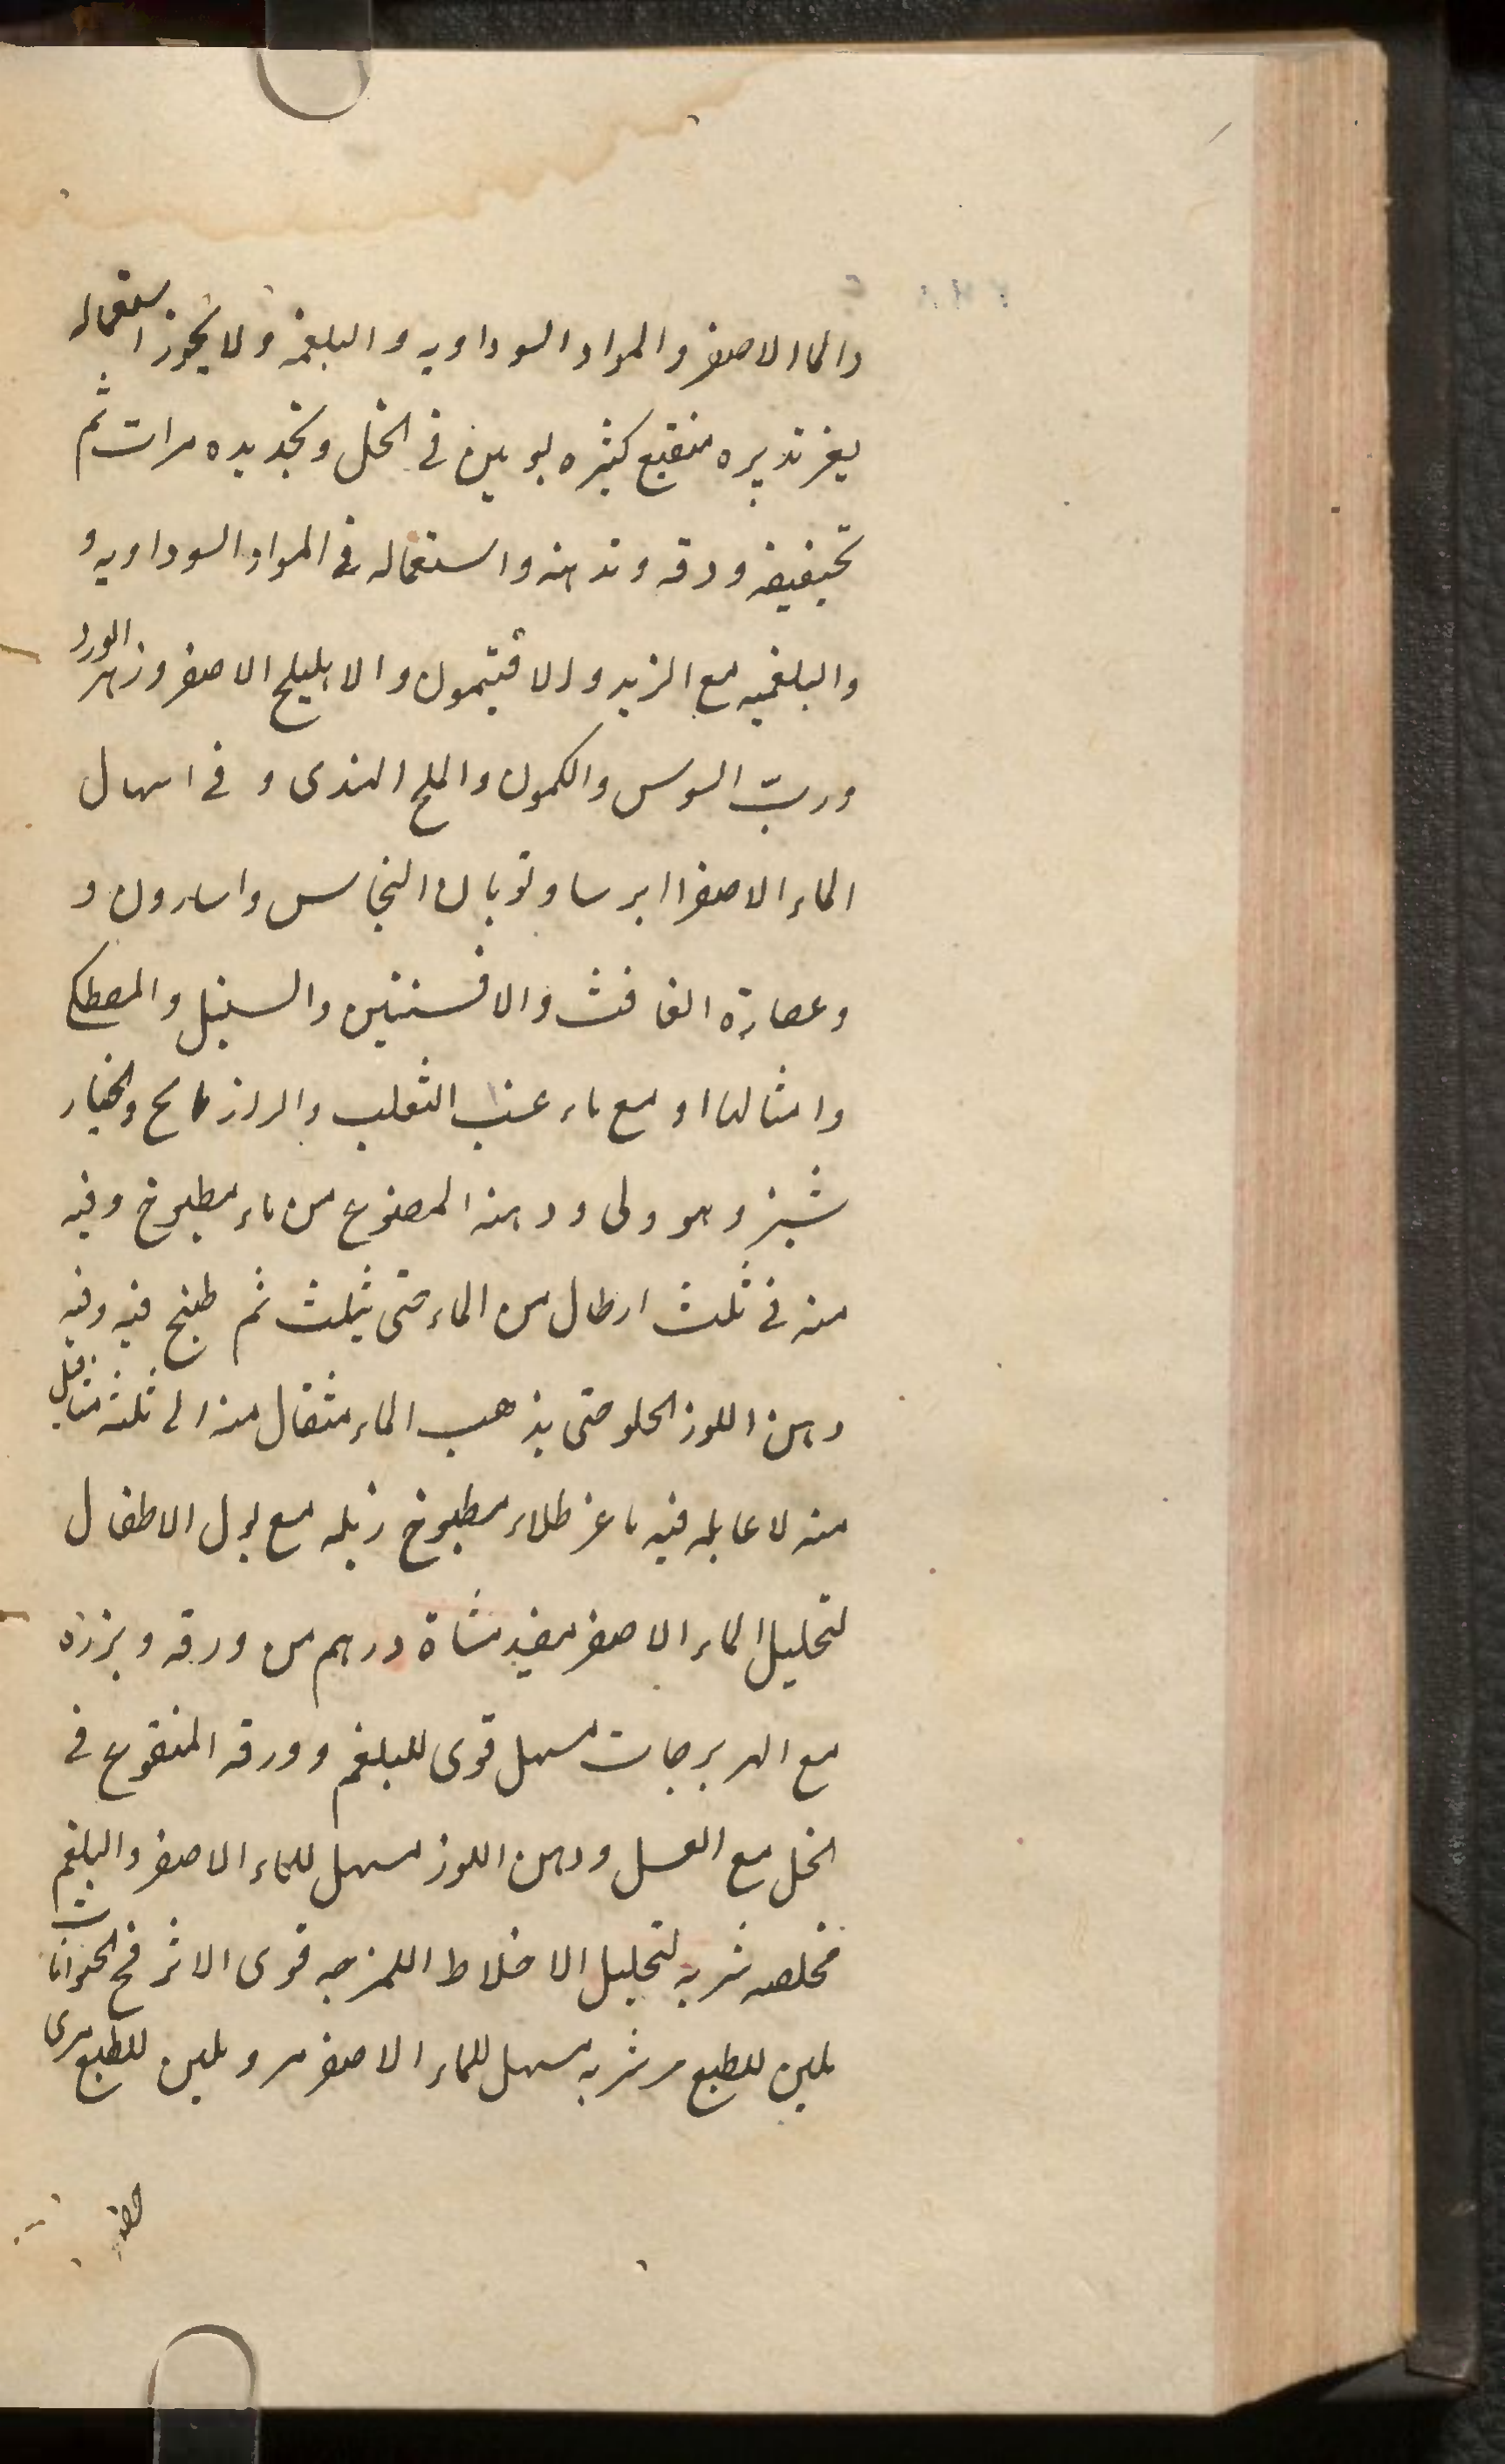 والماالاصفر والمواد السوداويه والبلغمه ولا يجوز استعماله
بغير تدبيره منقيع كثيره يومين في الخل وتجديده مرات ثم
تجفيفه ودقه وتدهنه واستعماله في المواد السوداويه و
والبلغميه مع الزبد والافتيمون والاهليلج الاصفر وزهر الورد
وربّ السوس والكمون والملح الهندى و في اسهال
الماء الاصفر ايرسا وتوبال النحاس واسارون و
وعصارة الغافث والافسنتين والسنبل والمصطكى
وامثالها او مع ماء عنب الثعلب والرازيانج والخيار
شنبر وهو ولى ودهنه المصنوع من ماء مطبوخ وفيه
منه في ثلث ارطال من الماء حتى يثلث ثم طبخ فيه وفيه
دهن اللوز الحلو حتى يذهب الماء مثقال منه الى ثلثه مثاقيل
منه لا عايله فيه طلاء مطبوخ زبله مع بول الاطفال
لتحليل الماء الاصفر مفيد درهم من ورقه وبزره
مع مسهل قوى للبلغم وورقه المنقوع في
الخل مع العسل ودهن اللوز مسهل للماء الاصفر والبلغم
مخلصه شربه لتحليل الاخلاط اللزجه قوى الاثر
ملين للطبع مر شربه مسهل للماء الاصفر مر وملين للطبع مرى